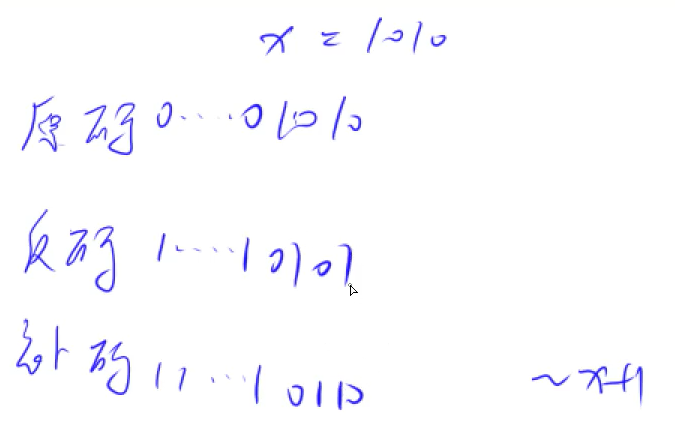 x = 1010
原码 0....01010
反码 1....10101
补码 11...10110 ~x+1